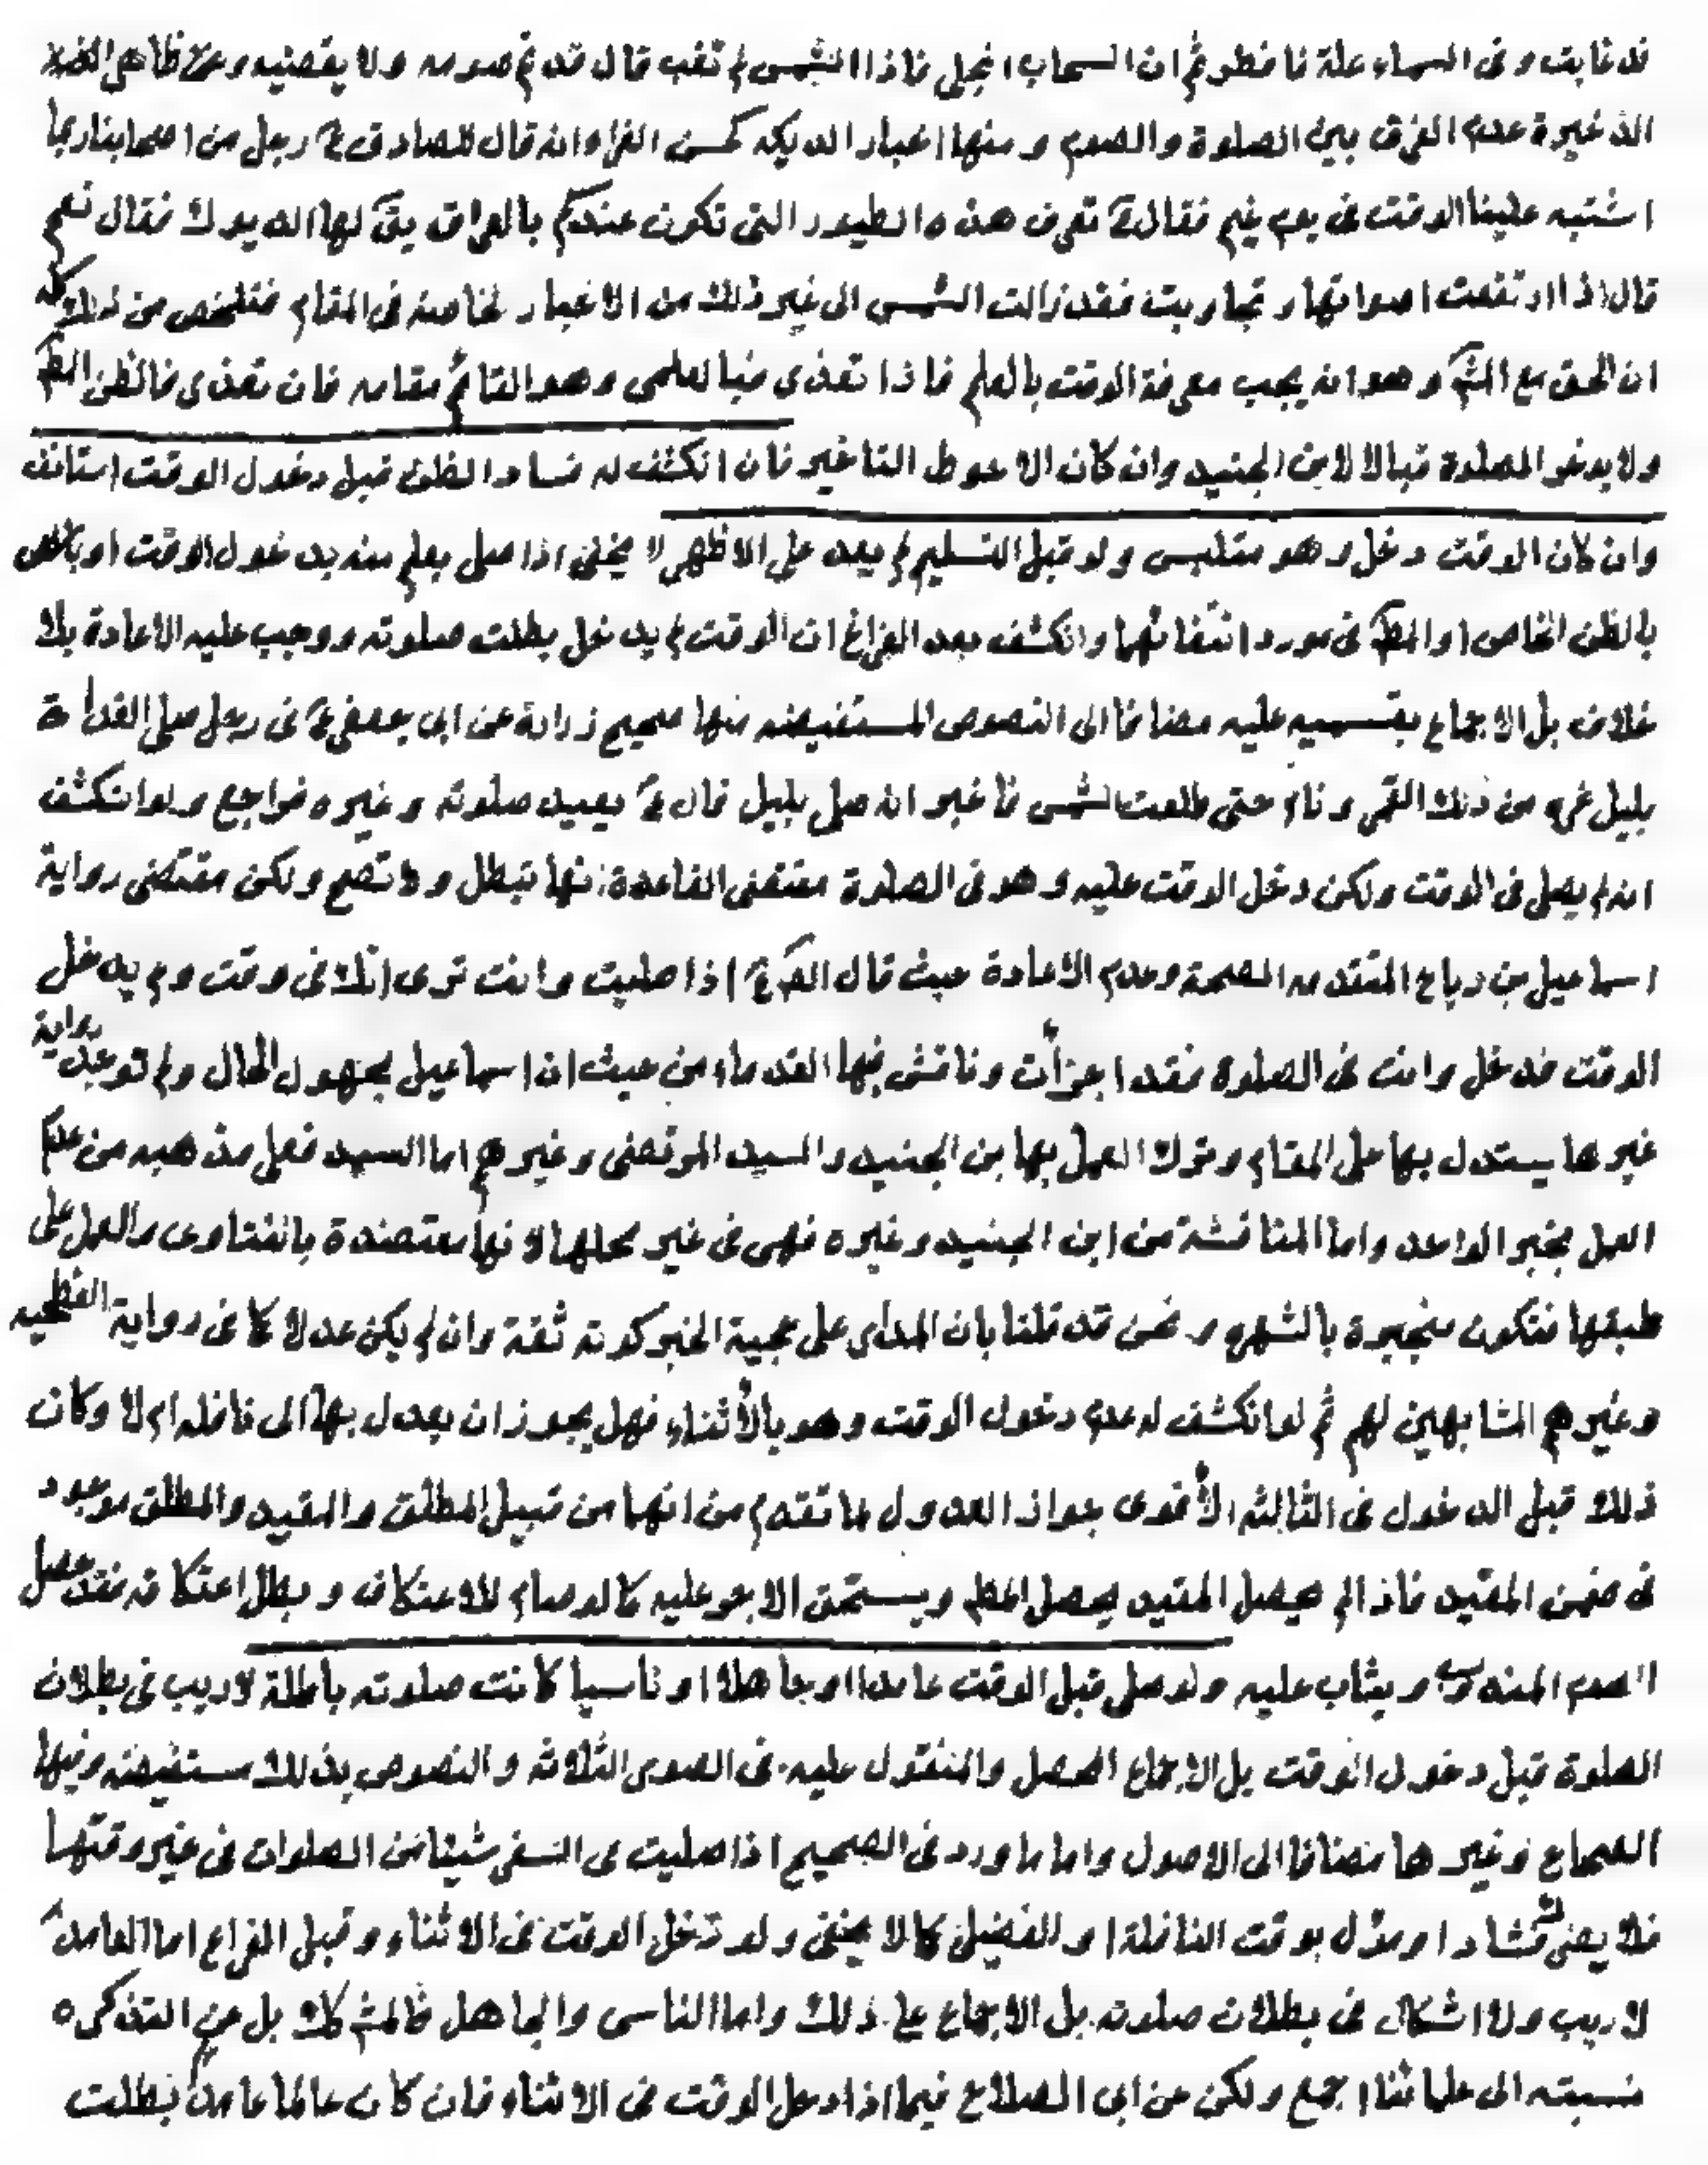 قد غابت و فى السماء علة فافطر ثم ان السحاب انجلى فاذا الشمس لم تغب قال قد تم صومه ولا يقضيه وعن ظاهر
الذخيرة عدم الفرق بين الصلوة والصوم و منها اخبار الديكه كحسن الفراء انه قال للصادق ع رجل من اصحابنا ربما
اشتبه علينا الوقت فى يوم غيم فقال ع تعرف هذه الطيور التى تكون عندكم بالعراق يق لها الديوك فقال نعم
قال اذا ارتفعت اصواتها و تجاوبت فقد زالت الشمس الى غير ذلك من الاخبار الخاصه فى المقام فتلخص من ذلك كله
ان الحق مع المش و هو انه يجب معرفة الوقت بالعلم فاذا تعذر فبالعلمى وهو القائم مقامه فان تعذر فالظن المط
ولا يدخر الصلوة قبالا لابن الجنيد وان كان الاحوط التاخير فان انكشف له فساد الظن قبل دخول الوقت استانف
وان كان الوقت دخل و هو متلبس ولو قبل التسليم لم يعد على الاظهر لا يخفى اذا صلى بعلم منه بدخول الوقت او
بالظن الخاص او المط فى مورد انتفائهما وانكشف بعد الفراغ ان الوقت لم يدخل بطلت صلوته ووجب عليه الاعادة بلا
خلاف بل الاجماع بقسميه عليه مضافا الى النصوص المستفيضه منها صحيح زرارة عن ابى جعفر ع فى رجل صلى الغداة
بليل غره من ذلك القمر و نام حتى طلعت الشمس فاخبر انه صلى بليل قال ع يعيد صلوته و غيره فراجع ولو انكشف
انه لم يصلى فى الوقت ولكن دخل الوقت عليه و هو فى الصلوة مقتضى القاعدة انها تبطل ولا تصح ولكن مقتضى رواية
اسماعيل بن رباح المتقدمه الصحة وعدم الاعادة حيث قال الص ع اذا صليت وانت ترى انك فى وقت ولم يدخل
الوقت فدخل وانت فى الصلوة فقد اجزأت وناقش فيها القدماء من حيث ان اسماعيل مجهول الحال ولم توجد رواية
غيرها يستدل بها على المقام و ترك العمل بها بن الجنيد والسيد المرتضى وغيرهم اما السيد فعلى مذهبه من عدم
العمل بخبر الواحد واما المناقشة من ابن الجنيد وغيره فهى فى غير محلها لانها معتضدة بالفتاوى والعمل على
طبقها فتكون منجبرة بالشهره ونحن قد قلنا بان المدار على حجية الخبر كونه ثقة وان لم يكن عدلا كما فى رواية الفطحيه
وغيرهم المشابهين لهم ثم لو انكشف له عدم دخول الوقت وهو بالأثناء فهل يجوز ان يعدل بها الى نافله ام لا وكان
ذلك قبل الدخول فى الثالثه الأقوى جواز العدول لما تقدم من انهما من قبيل المطلق والمقيد والمطلق موجود
فى ضمن المقيد فاذا لم يحصل المقيد يحصل المط ويستحق الاجر عليه كما لو صام للاعتكاف وبطل اعتكافه فقد حصل
الصوم المندوب ويثاب عليه ولو صلى قبل الوقت عامدا او جاهلا او ناسيا كانت صلوته باطلة لا ريب فى بطلان
الصلوة قبل دخول الوقت بل الاجماع المحصل والمنقول عليه فى الصور الثلاثه والنصوص بذلك مستفيضه وفيها
الصحاح وغيرها مضافا الى الاصول واما ما ورد فى الصحيح اذا صليت فى السفر شيئا من الصلوات فى غير وقتها
فلا يضر فشاذ او مؤل بوقت النافلة او الفضيلة كما لا يخفى ولو دخل الوقت فى الاثناء وقبل الفراغ اما العامد
لا ريب ولا اشكال فى بطلان صلوته بل الاجماع على ذلك واما الناسى والجاهل فالمش كذلك بل عن التذكره
نسبته الى علمائنا اجمع ولكن عن ابى الصلاح فيما اذا دخل الوقت فى الاثناء فان كان عالما عامدا بطلت